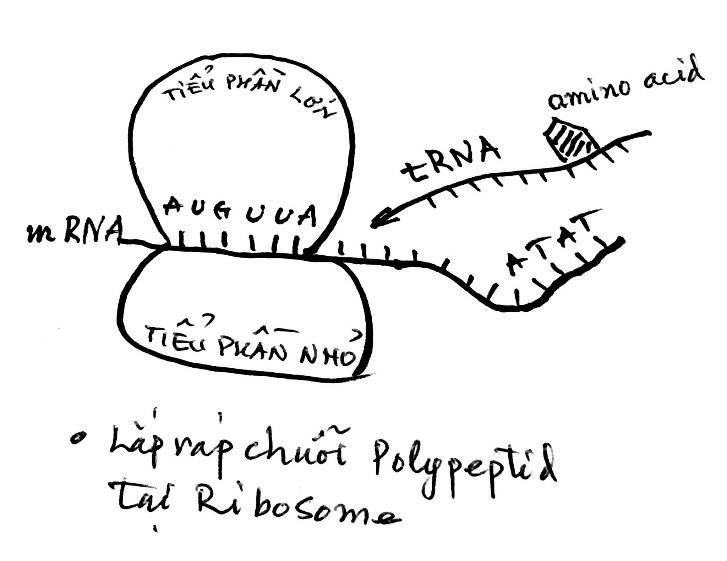 TIỂU PHẦN LỚN
amino acid
tRNA
AUGUUA
mRNA
ATAT
TIỂU PHẦN NHỎ
• Lắp ráp chuỗi Polypeptid
tại Ribosome